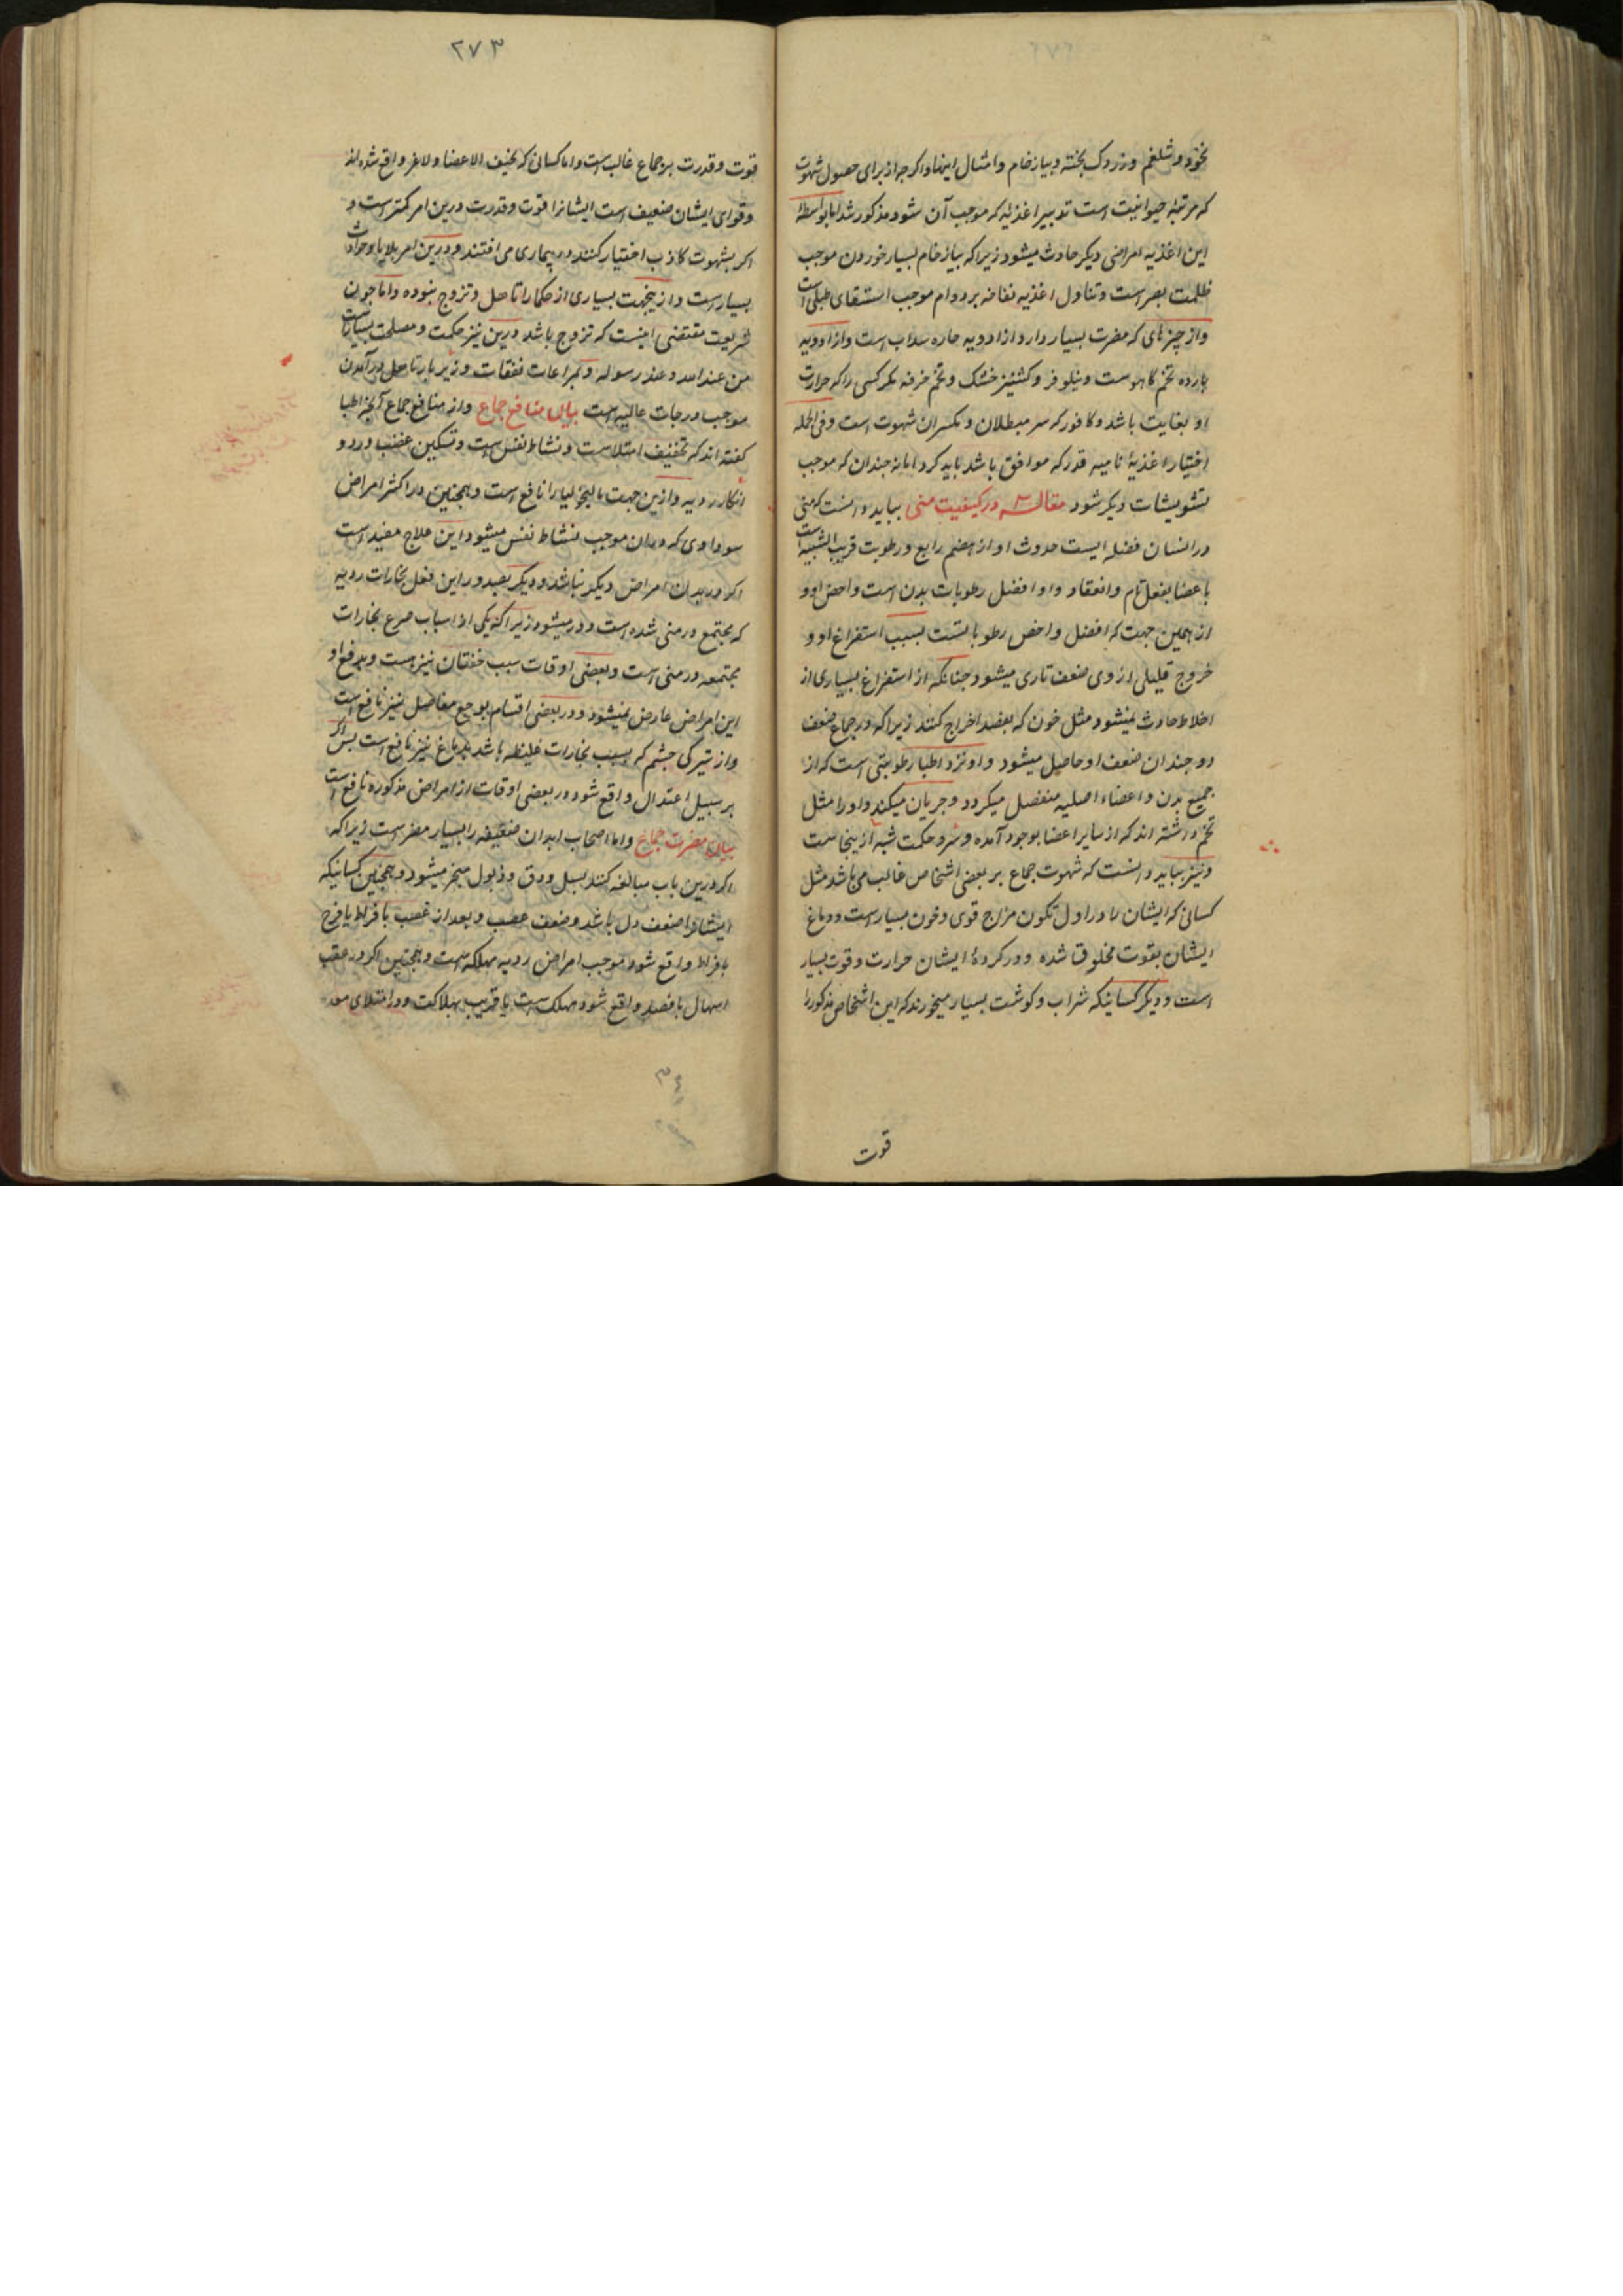 نخود و شلغم و زردک پخته و پیاز خام و امثال اینها و اکرچه از برای حصول شهوت
که مرتبه حیوانیت است تدبیر اغذیه که موجب آن شود مذکور شد اما بواسطه
این اغذیه امراض دیکر حادث میشود زیراکه پیاز خام بسیار خوردن موجب
ظلمت بصر است و تناول اغذیه نفاخه بر دوام موجب استسقای طبلی است
و از چیزهای که مضرت بسیار دارد از ادویه حاره سداب است و از ادویه
بارده تخم کاهوست و نیلوفر و کشنیز خشک و تخم خرفه مکر کسی را که حرارت
او بغایت باشد و کافور که سر مبطلان و مکسران شهوت است و فی الجمله
اختیار اغذیه نامیه قدر که موافق باشد باید کرد اما نه چندان که موجب
تشویشات دیکر شود مقاله در کیفیت منی بباید دانست که منی
در انسان فضله ایست حدوث او از هضم رابع و رطوبت قریب الشبیه است
باعضا بفعل تام و انعقاد و او افضل رطوبات بدن است و اخص او و
از همین جهت که افضل و اخص رطوباتست بسبب استفراغ او و
خروج قلیلی از وی ضعف تاری میشود چنانکه از استفراغ بسیاری از
اخلاط حادث نمیشود مثل خون که بفصد اخراج کنند زیراکه در جماع ضعف
دو چندان ضعف او حاصل میشود و او نزد اطبا رطوبتی است که از
جمیع بدن و اعضاء اصلیه منفصل میکردد و جریان میکند و او را مثل
تخم داشته اند که از سایر اعضا بوجود آمده و سر و حکمت شبه ازینجاست
و نیز بباید دانست که شهوت جماع بر بعضی اشخاص غالب می باشد مثل
کسانی که ایشان را در اول تکون مزاج قوی و خون بسیار است و دماغ
ایشان بقوت مخلوق شده و در کرده ایشان حرارت و قوت بسیار
است و دیکر کسانیکه شراب و کوشت بسیار میخورند که این اشخاص مذکور را
قوت
۲۷۳
قوت و قدرت بر جماع غالب است و اما کسانی که نحیف الاعضا و لاغر واقع شده اند
و قوای ایشان ضعیف است ایشانرا قوت و قدرت درین امر کمتر است و
اکر بشهوت کاذب اختیار کنند در بیماری می افتند و درین امر بلایا و حوادث
بسیار است و ازینجهت بسیاری از حکما را تاهل و تزوج نبوده و اما چون
شریعت مقتضی اینست که تزوج باشد درین نیز حکمت و مصلحت بسیار است
من عند الله و عند رسوله و بمراعات نفقات و زیر بار تاهل در آمدن
موجب درجات عالیه است بیان منافع جماع و از منافع جماع آنچه اطبا
کفته اند که تخفیف امتلاست و نشاط نفس است و تسکین غضب و رد و
انکار ردیه و ازین جهت مالیخولیا را نافع است و همچنین در اکثر امراض
سوداوی که در آن موجب نشاط نفس میشود این علاج مفید است
اکر در بدن امراض دیکر نباشد و دیکر بعید و راین فعل بخارات ردیه
که مجتمع در منی شده است دور میشود زیراکه یکی از اسباب صرع بخارات
مجتمعه در منی است و بعضی اوقات سبب خفقان نیز هست و بدفع او
این امراض عارض نمیشود و در بعضی اقسام بوجع مفاصل نیز نافع است
و از تیرکی چشم که بسبب بخارات غلیظه باشد بدماغ نیز نافع است پس اکر
بر سبیل اعتدال واقع شود در بعضی اوقات از امراض مذکوره نافع است
بیان مضرت جماع و اما اصحاب ابدان ضعیفه را بسیار مضر است زیراکه
اکر درین باب مبالغه کنند بسل و دق و ذبول منجر میشود و همچنین کسانیکه
ایشانرا ضعف دل باشد و ضعف عصب و بعد از غضب بافراط یا فرح
بافراط واقع شود موجب امراض ردیه مهلکه است و همچنین اکر در عقب
اسهال یا فصد واقع شود مهلک است یا قریب بهلاکت و در امتلای معده